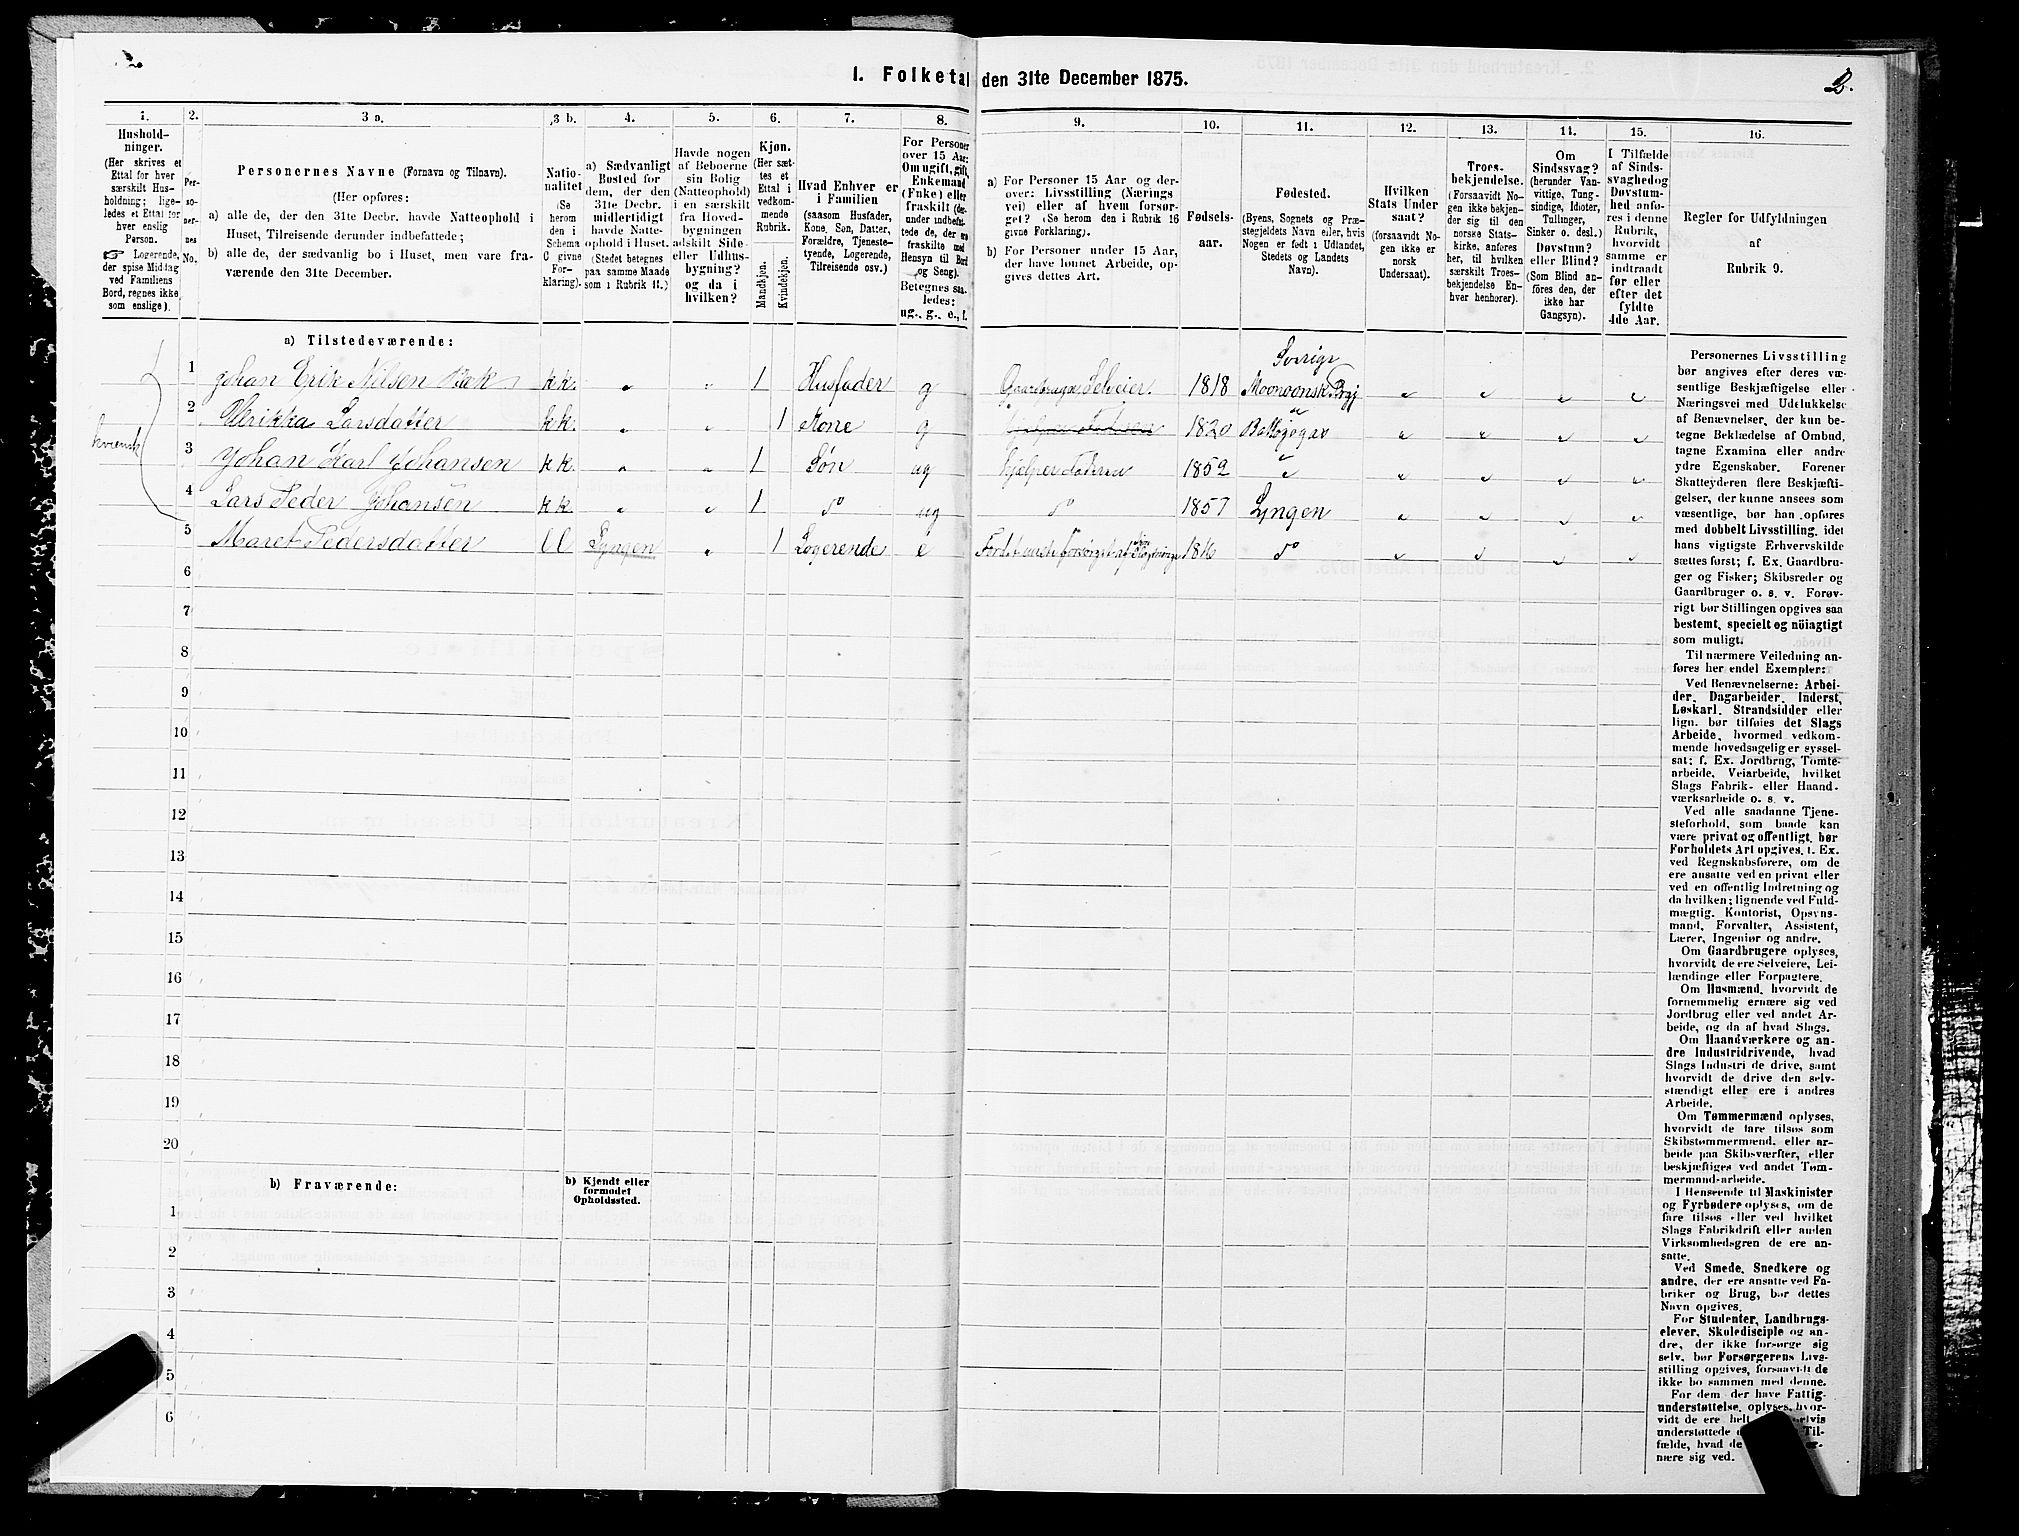 1. Folketal den 31te December 1875.
2.
1.
Hushold-
ninger.
(Her skrives et
Ettal for hver
særskilt Hus-
holdning; lige-
ledes et Ettal for
hver enslig
Person.
☞ Logerende,
der spise Middag
ved Familiens
Bord, regnes ikke
som enslige).
2.
Per-
so-
ner-
nes
No.
3 a.
Personernes Navne (Fornavn og Tilnavn).
(Her opføres:
a) alle de, der den 31te Decbr. havde Natteophold i
Huset, Tilreisende derunder indbefattede;
b) alle de, der sædvanlig bo i Huset, men vare fra-
værende den 31te December.
3 b.
Natio-
nalitet
(Se
herom
den i
Schema
C givne
For-
klaring).
4.
a) Sædvanligt
Bosted for
dem, der den
31te Decbr.
midlertidigt
havde Natte-
ophold i Huset.
(Stedet betegnes
paa samme Maade
som i Rubrik 11.)
5.
Havde nogen
af Beboerne
sin Bolig
(Natteophold)
i en særskilt
fra Hoved-
bygningen
adskilt Side-
eller Udhus-
bygning?
og da i
hvilken?
6.
Kjøn.
(Her sæt-
tes et
Ettal i
vedkom-
mende
Rubrik.
Mandkjøn.
Kvindekjøn.
7.
Hvad Enhver er
i Familien
(saasom Husfader,
Kone, Søn, Datter,
Forældre, Tjeneste-
tyende, Logerende,
Tilreisende osv.)
8.
For Personer
over 15 Aar:
Om ugift, gift,
Enkemand
(Enke) eller
fraskilt (der-
under indbefat-
tede de, der ere
fraskilte med
Hensyn til Bord
og Seng).
Betegnes saa-
ledes:
ug., g., e., f.
9.
a) For Personer 15 Aar og der-
over: Livsstilling (Nærings-
vei) eller af hvem forsør-
get? (Se herom den i Rubrik 16
givne Forklaring).
b) For Personer under 15 Aar,
der have lønnet Arbeide, op-
gives dettes Art.
10.
Fødsels-
aar.
11.
Fødested.
(Byens, Sognets og Præ-
stegjeldets Navn eller, hvis
Nogen er født i Udlandet,
Stedets og Landets
Navn).
12.
Hvilken
Stats Under-
saat?
(forsaavidt No-
gen ikke er
norsk
Undersaat).
13.
Troes-
bekjendelse.
(Forsaavidt No-
gen ikke bekjen-
der sig til den
norske Stats-
kirke, anføres
her, til hvilken
særskilt Troes-
bekjendelse En-
hver henhører).
14.
Om
Sindssvag?
(herunder Van-
vittige, Tung-
sindige, Idioter,
Tullinger,
Sinker o. desl.)
Døvstum?
eller Blind?
(Som Blind an-
føres den, der
ikke har
Gangsyn).
15.
I Tilfælde
af Sinds-
svaghed og
Døvstum-
hed anfø-
res i denne
Rubrik,
hvorvidt
samme er
indtraadt
før eller
efter det
fyldte
4de Aar.
16.
Regler for Udfyldningen
af
Rubrik 9.
a) Tilstedeværende:
kvensk
1 Johan Erik Nilsen Bæk kk. " " 1 Husfader g Gaardbruger Selveier. 1818 Sverige " " " "
2 Ulrikka Larsdatter kk. " " 1 Kone g 1820 " " " "
3 Johan Karl Johansen kk. " " 1 Søn ug hjelper Faderen 1852 " " " " "
4 Lars Peder Johansen kk " " 1 do ug do 1857 Lyngen " " " "
5 Maret Pedersdatter ll Lyngen " 1 Logerende e 1816 do " " " "
6
7
8
9
10
11
12
13
14
15
16
17
18
19
20
b) Fraværende:
b) Kjendt eller
formodet
Opholdssted.
1
2
3
4
5
6
Personernes Livsstilling
bør angives efter deres væ-
sentlige Beskjæftigelse eller
Næringsvei med Udelukkelse
af Benævnelser, der kun be-
tegne Beklædelse af Ombud,
tagne Examina eller andre
ydre Egenskaber. Forener
Skatteyderen flere Beskjæfti-
gelser, der kunne ansees som
væsentlige, bør han opføres
med dobbelt Livsstilling, idet
hans vigtigste Erhvervskilde
sættes først; f. Ex. Gaardbru-
ger og Fisker; Skibsreder og
Gaardbruger o. s. v. Forøv-
rigt bør Stillingen opgives saa
bestemt, specielt og nöiagtigt
som muligt.
Til nærmere Veiledning an-
føres her endel Exempler:
Ved Benævnelserne: Arbei-
der, Dagarbeider, Inderst,
Løskarl, Strandsidder eller
lign. bør tilføies det Slags
Arbeide, hvormed vedkom-
mende hovedsagelig er syssel-
sat; f. Ex. Jordbrug, Tomte-
arbeide, Veiarbeide, hvilket
Slags Fabrik- eller Haand-
værksarbeide o. s. v.
Ved alle saadanne Tjene-
steforhold, som baade kan
være privat og offentligt, bør
Forholdets Art opgives, f. Ex.
ved Regnskabsførere, om de
ere ansatte ved en privat eller
ved en offentlig Indretning og
da hvilken; lignende ved Fuld-
mægtig, Kontorist, Opsyns-
mand, Forvalter, Assistent,
Lærer, Ingeniør og andre.
Om Gaardbrugere oplyses,
hvorvidt de ere Selveiere, Lei-
lændinge eller Forpagtere.
Om Husmænd, hvorvidt de
fornemmelig ernære sig ved
Jordbrug eller ved andet Ar-
beide, og da af hvad Slags.
Om Haandværkere og an-
dre Industridrivende, hvad
Slags Industri de drive, samt
hvorvidt de drive den selv-
stændigt eller ere i andres
Arbeide.
Om Tømmermænd oplyses,
hvorvidt de fare tilsøs som
Skibstømmermænd, eller ar-
beide paa Skibsværfter, eller
beskjæftiges ved andet Tøm-
mermand-arbeide.
I Henseende til Maskinister
og Fyrbødere oplyses, om de
fare tilsøs eller ved hvilket
Slags Fabrikdrift eller anden
Virksomhedsgren de ere an-
satte.
Ved Smede, Snedkere og
andre, der ere ansatte ved Fa-
briker og Brug, bør dettes
Navn opgives.
For Studenter, Landbrugs-
elever, Skoledisciple og an-
dre, der ikke forsørge sig
selv, bør Forsørgerens Livs-
stilling opgives, forsaavidt de
ikke bo sammen med denne.
For dem, der have Fattig-
understøttelse, oplyses, hvor-
vidt de ere helt
understøttede Til-
fælde, hvad de
nære sig ved.